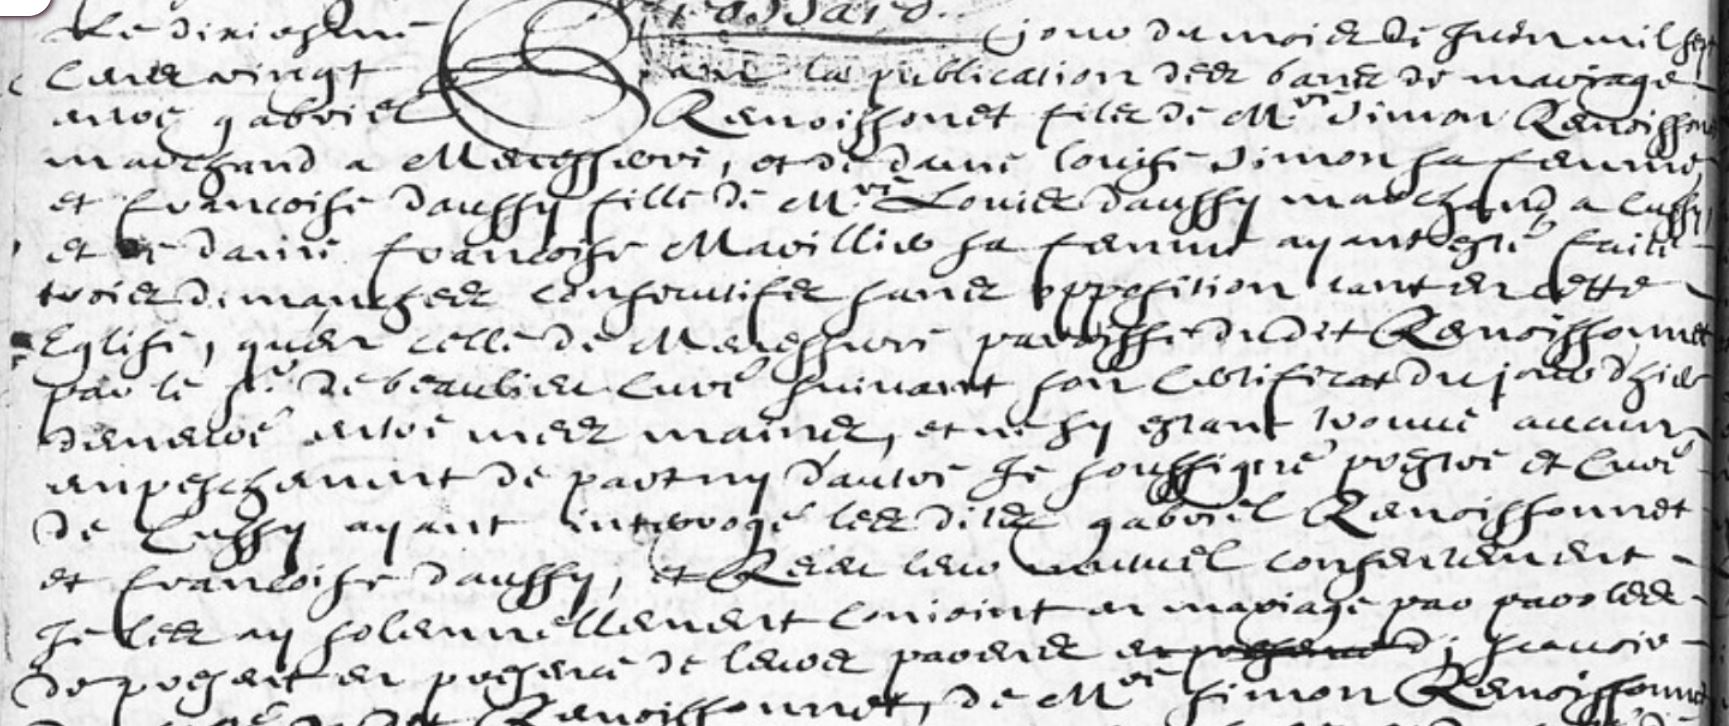 Le dixiesme jour du mois de Juin mil sept
cens vingt la publication des bans de mariage
entre gabriel Renoissonet fils de Mre Simon Renoissonet
marchand a et de dame louise Simon sa femme,
et francoise daussy fille de Mre Louis daussy marchand a Cussy,
et de dame francoise Mavillier sa femme ayant esté faite
trois dimanches consecutifes sans opposition tant en cette
Eglise, qu'en celle de paroisse dudit Renoissonnet
par le sr de beaulieu curé suivant son certificat du jour d'hier
entre mes mains, et ne sy estant trouvé aucun
enpeschement de part ny d'autre Je soussigné prestre et curé
de Cussy ayant interrogé les dites gabriel Renoissonnet
et francoise daussy, et Receu leur mutuel consentement
Je les ay solennellement conjoint en mariage par paroles
de present en presence de leurs parens
Renoissonnet, de Mre simon Renoissonnet